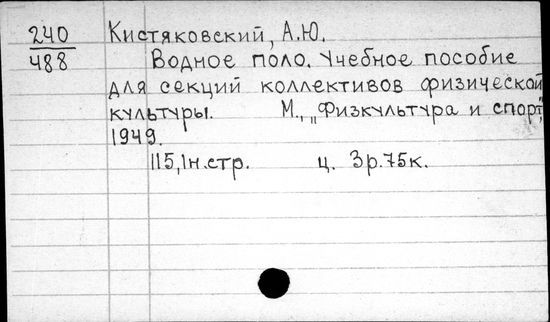 240 Кистяковский, А.Ю.
488 Водное поло. Учебное пособие
для секций коллективов физической
культуры. М., „Физкультура и спорт",
1949.
115,1н.стр. ц. 3р.75к.